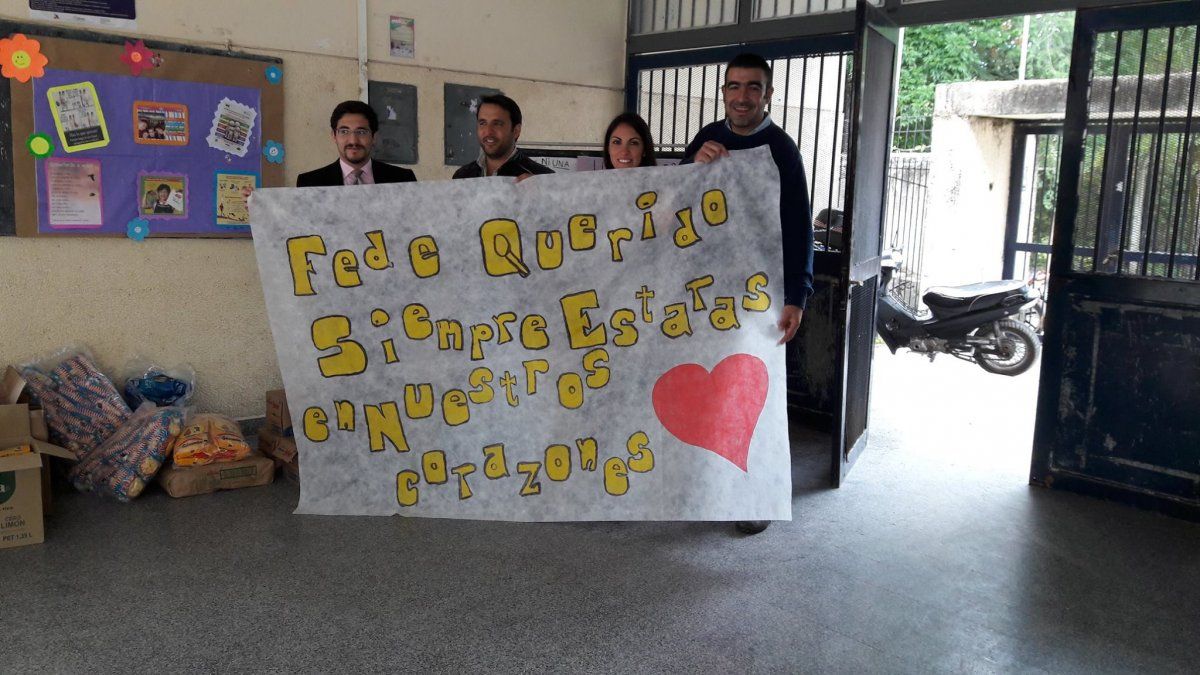 Fede Querido
Siempre Estaras
en Nuestros
corazones
NI UNA
CERO
LIMON
PET 1.35 L